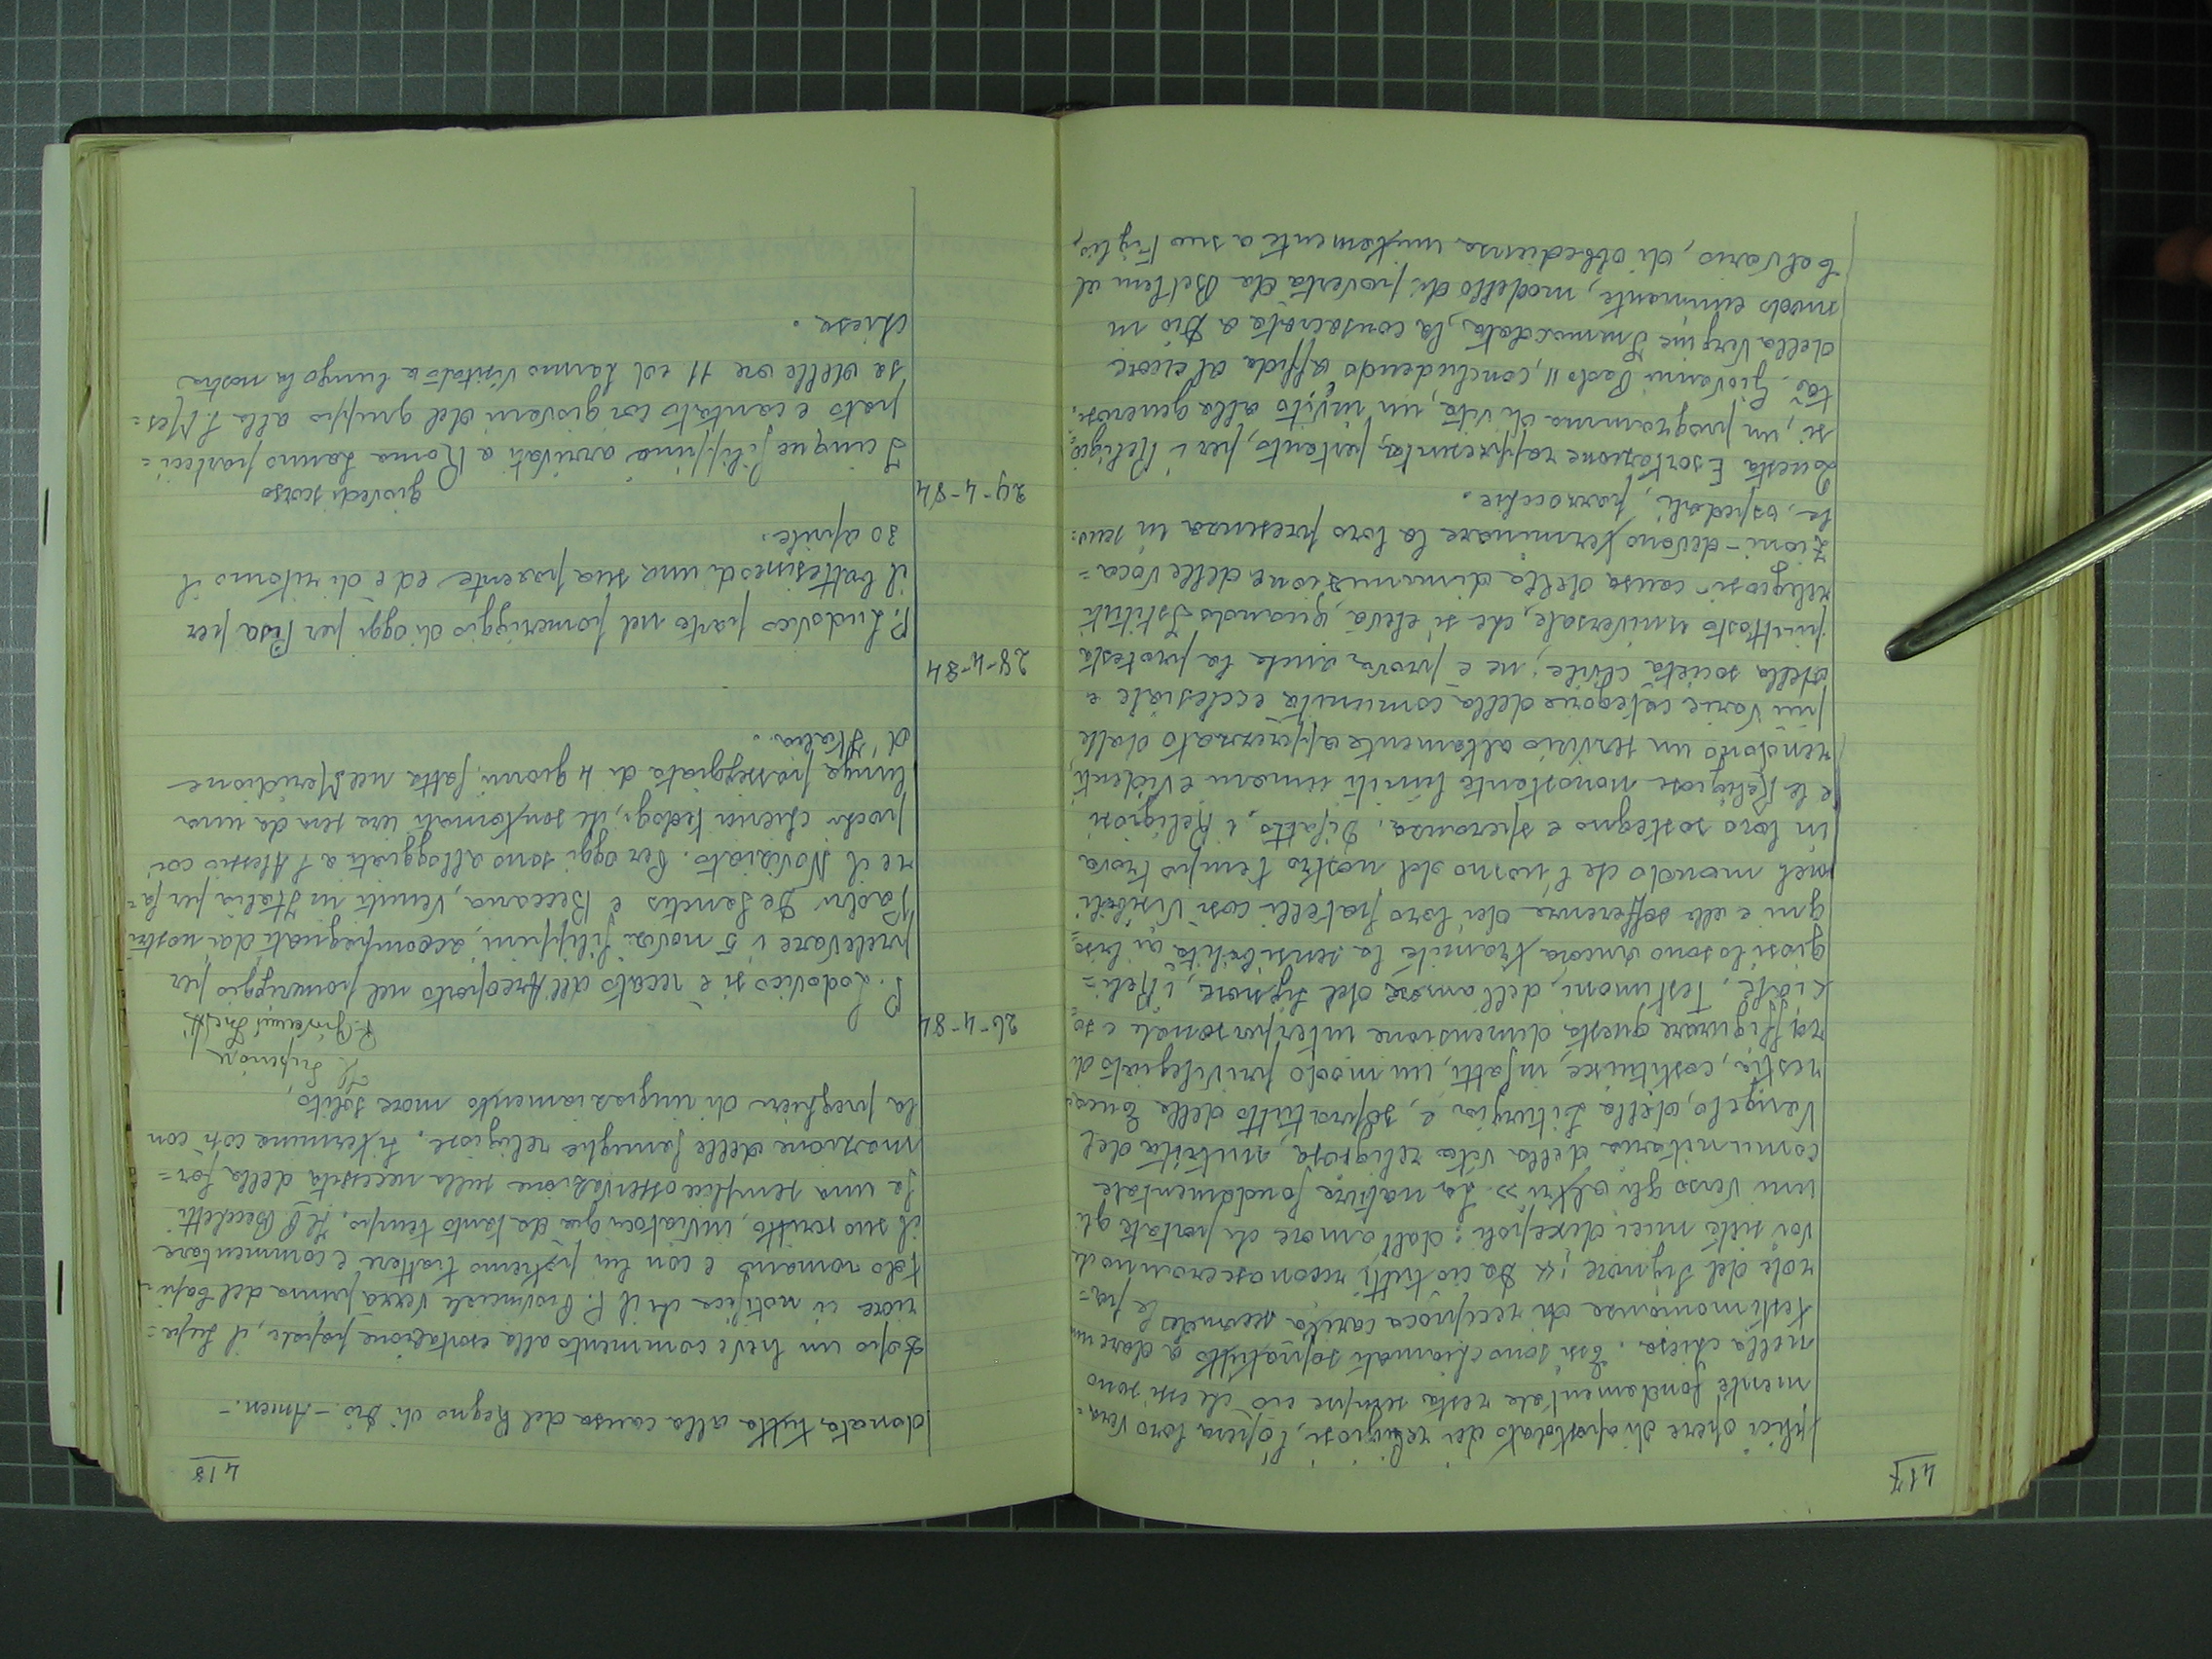 417
plici opere di apostolato dei religiosi, l'opera loro vera=
mente fondamentale resta sempre ciò che essi sono
nella chiesa. Essi sono chiamati sopratutto a dare una
testimonianza di reciproca carità secondo le pa=
role del Signore: « Da ciò tutti riconosceranno che
voi siete miei discepoli: dall'amore che portate gli
uni verso gli altri ». La natura fondamentale
comunitaria della vita religiosa, nutrita del
Vangelo, della Liturgia e, sopratutto della Euca=
restia, costituisce, infatti, un modo privilegiato di
raffigurare questa dimensione interpersonale e so=
ciale. Testimoni, dell'amore del Signore, i Reli=
giosi lo sono ancora tramite la sensibilità ai biso=
gni e alle sofferenze dei loro fratelli così visibili
nel mondo che l'uomo del nostro tempo trova
in loro sostegno e speranza. Difatti, i Religiosi
e le Religiose nonostante limiti umani evidenti
rendono un servizio altamente apprezzato dalle
più varie categorie della comunità ecclesiale e
della società civile; ne è prova anche la protesta
piuttosto universale, che si eleva, quando Istituti
religiosi - causa della diminuzione delle voca=
zioni - devono terminare la loro presenza in scuo=
le, ospedali, parrocchie.
Questa Esortazione rappresenta, pertanto, per i Religio=
si, un programma di vita, un invito alla generosi=
tà. Giovanni Paolo II, concludendo affida al cuore
della Vergine Immacolata, la consacrata a Dio in
modo eminente, modello di povertà da Betlem al
Calvario, di obbedienza unitamente a suo Figlio,
418
donata tutta alla causa del Regno di Dio. - Amen. -
Dopo un breve commento alla esortazione papale, il Supe=
riore ci notifica che il P. Provinciale verrà prima del Capi=
tolo romano e con lui potremo trattare e commentare
il suo scritto, inviatoci già da tanto tempo. Il P. Beccheti
fa una semplice osservazione sulla necessità della for=
mazione delle famiglie religiose. Si termina così con
la preghiera di ringraziamento more solito,
Il Superiore
P. Giovanni
26-4-84
P. Lodovico si è recato all'Areoporto nel pomeriggio per
prelevare i 5 novizi filippini, accompagnati dai nostri
Padri De Sanctis e Beccaria, venuti in Italia per fa=
re il Noviziato. Per oggi sono alloggiati a S. Alessio coi
pochi chierici teologi, che son tornati iera sera da una
lunga passeggiata di 4 giorni, fatta nel Meridione
d'Italia.
28-4-84
P. Ludovico parte nel pomeriggio di oggi per Pisa per
il battesimo di una sua parente ed è di ritorno il
30 aprile.
29-4-84
giovedi scorso
I cinque filippini arrivati a Roma hanno parteci=
pato e cantato coi giovani del gruppo alla S. Mes=
sa delle ore 11 ed hanno visitato a lungo la nostra
chiesa.